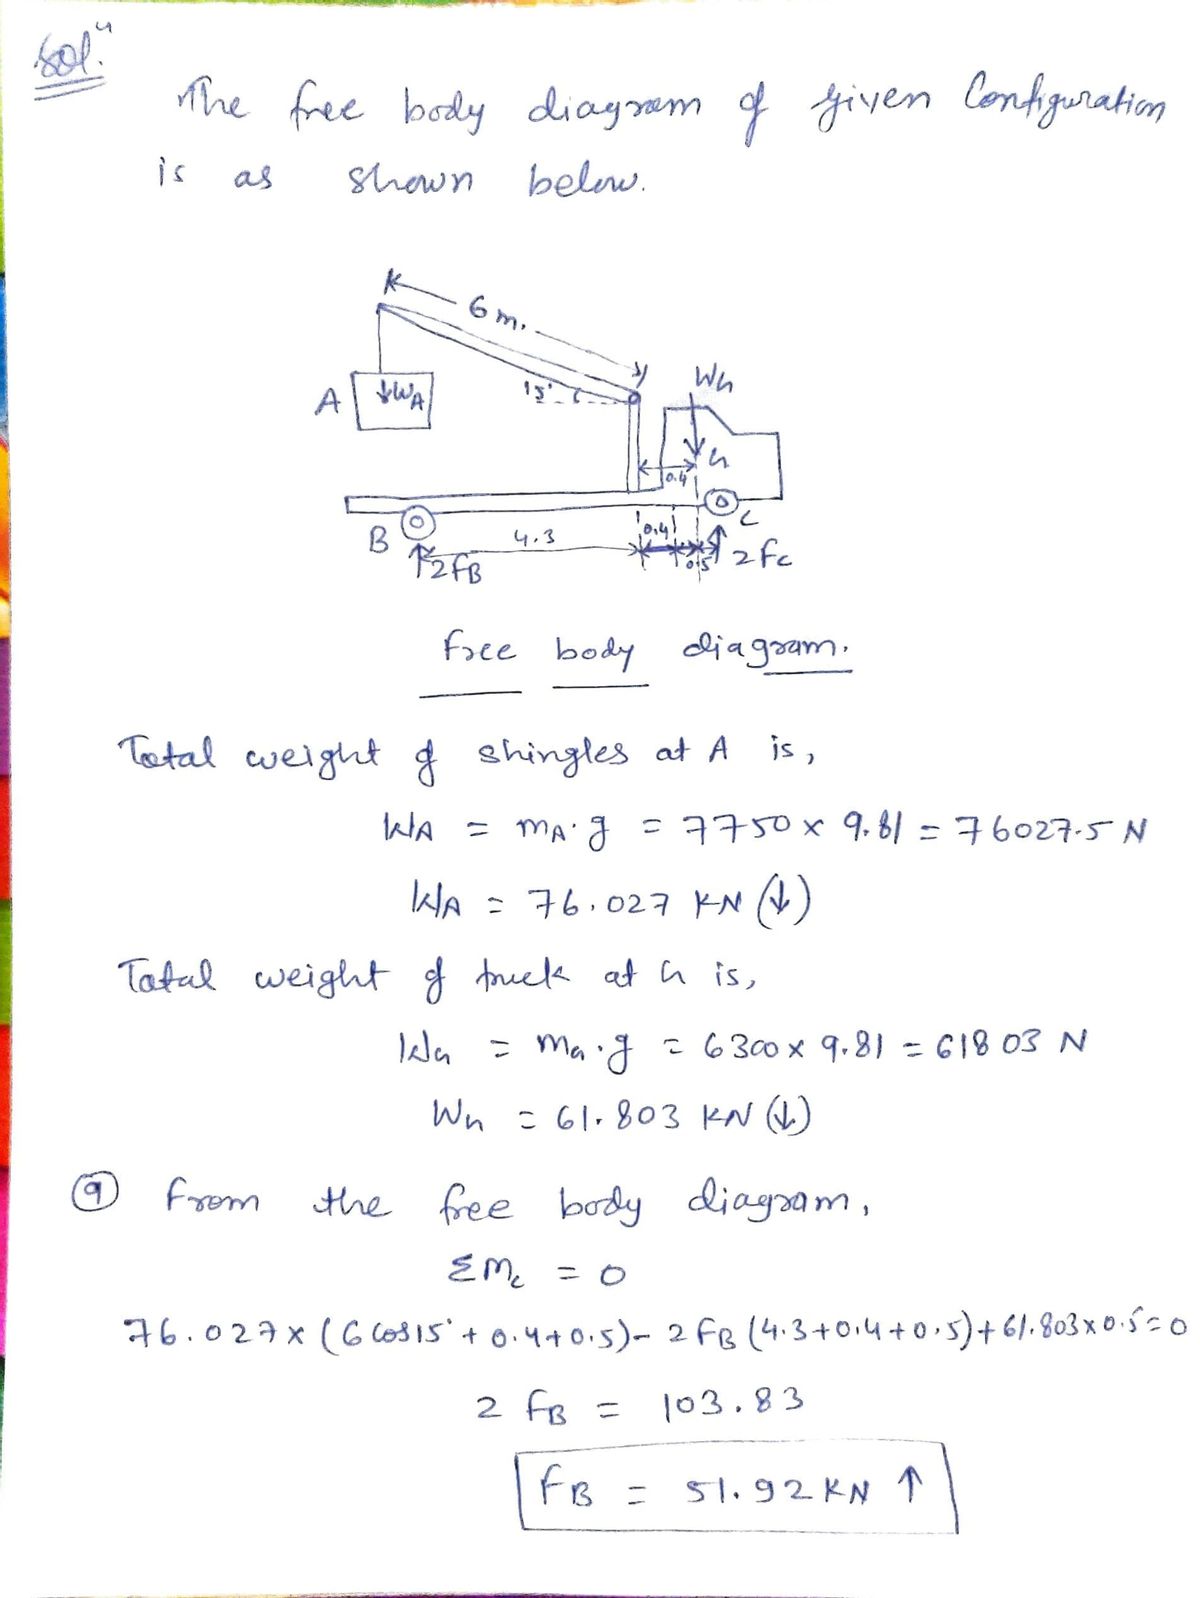 Solⁿ.
The free body diagram of given Configuration
is as shown below.
6 m.
A
↓WA
15°
WG
G
0.4
B
C
4.3
0.4
0.5
2FB
2FC
Free body diagram.
Total weight of shingles at A is,
WA = mA.g = 7750 x 9.81 = 76027.5 N
WA = 76.027 KN (↓)
Total weight of truck at G is,
WG = mG.g = 6300 x 9.81 = 61803 N
WG = 61.803 KN (↓)
(a) From the free body diagram,
ΣMc = 0
76.027 x (6 cos15° + 0.4+0.5) - 2 FB (4.3+0.4+0.5) + 61.803 x 0.5 = 0
2 FB = 103.83
FB = 51.92 KN ↑